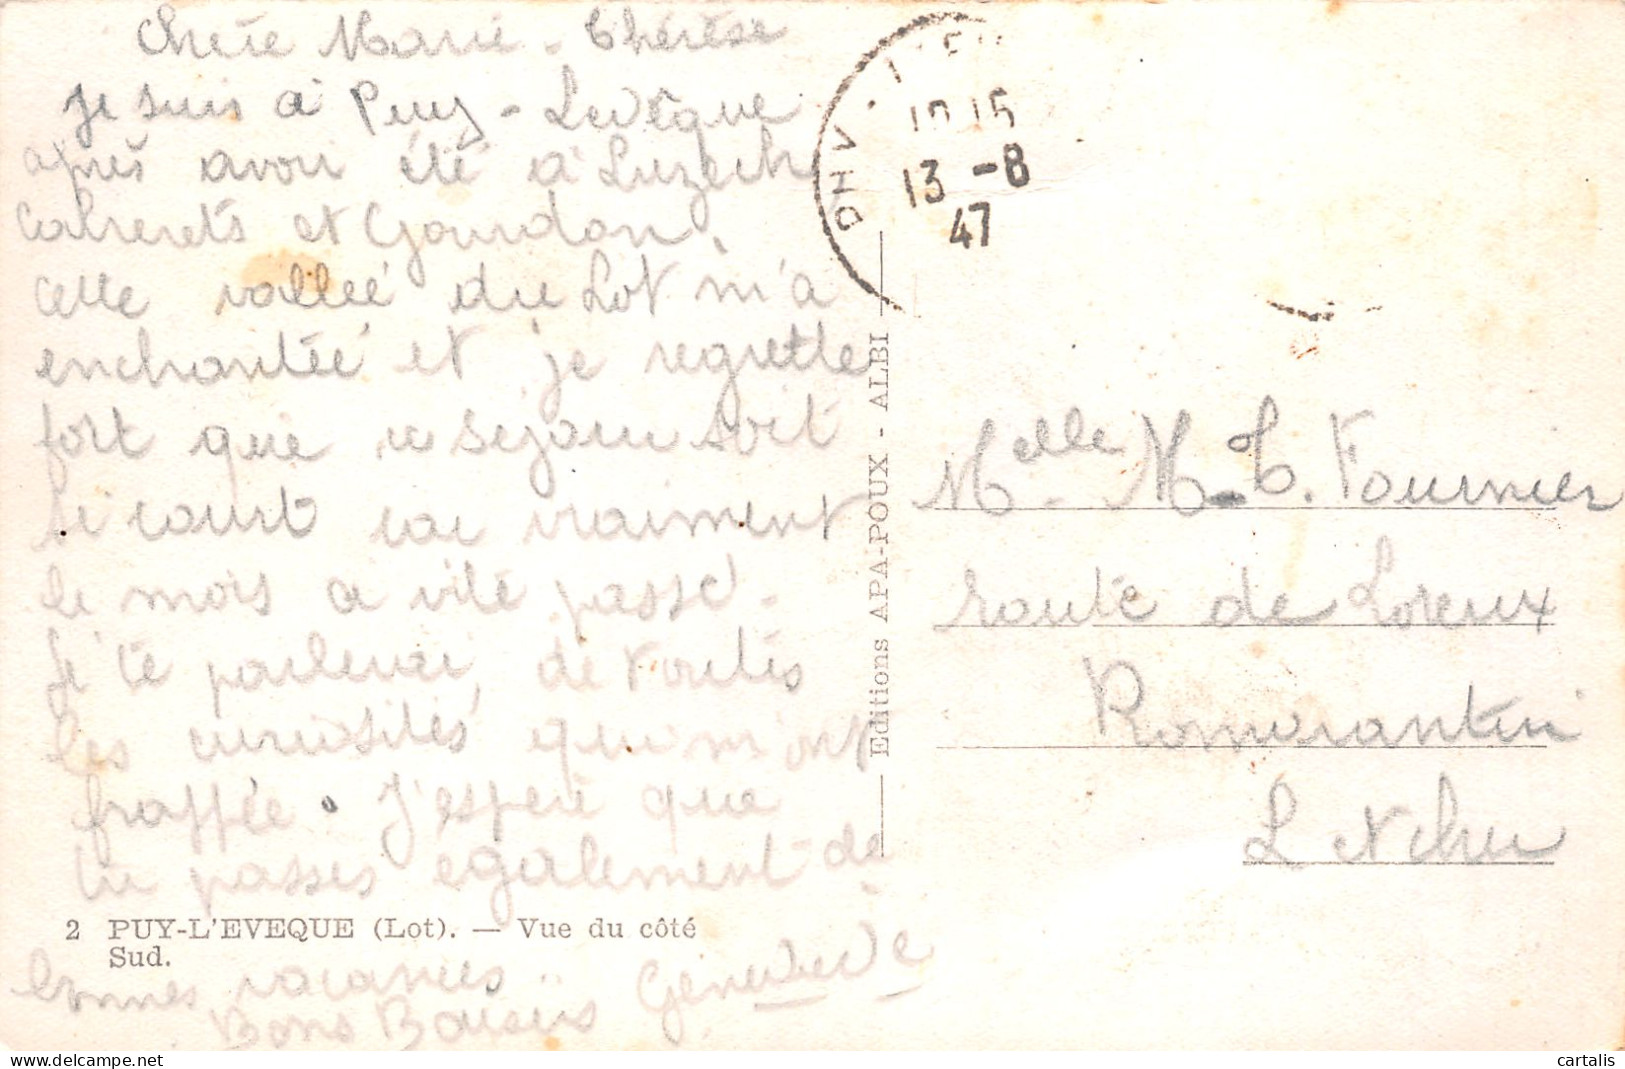 Chère Marie-Thérèse
je suis à Puy-Levêque
après avoir été à Luzech
Cahrerets et Gourdon.
cette vallée du Lot m'a
enchantée et je regrette
fort que ce séjour soit
si court car vraiment
le mois a vite passé.
Je te parlerai de toutes
les curiosités qui m'ont
frappée. J'espère que
tu passes également de
2 PUY-L'EVEQUE (Lot). — Vue du côté
Sud.
bonnes vacances.
Bons Baisers Geneviève
13 -8
47
Editions APA-POUX - ALBI
Melle M-T. Fournier
route de Loreux
Romorantin
L et Cher
cartalis